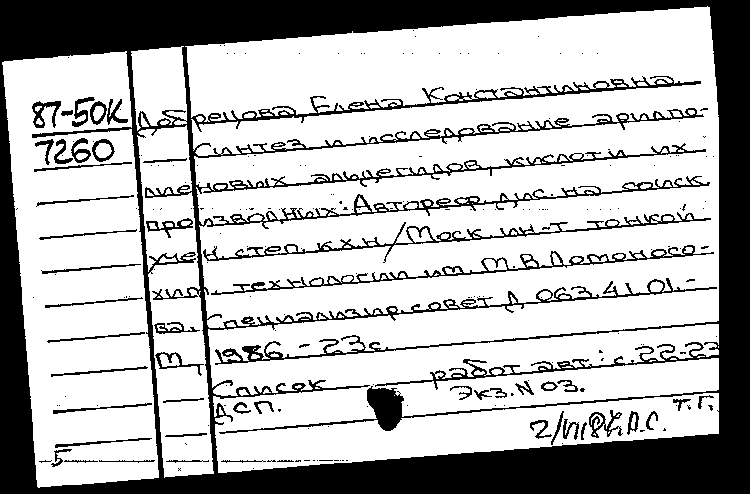 87-50К
7260
Добрецова, Елена Константиновна.
Синтез и исследование арилпо-
лиеновых альдегидов, кислот и их
производных: Автореф. дис. на соиск.
учен. степ. к.х.н/Моск. ин-т тонкой
хим. технологии им. М.В.Ломоносо-
ва. Специализир. совет Д 063.41.01.-
М, 1986. - 23с.
Список работ авт.: с.22-23
ДСП. Экз.N 03.
т.Г.
5